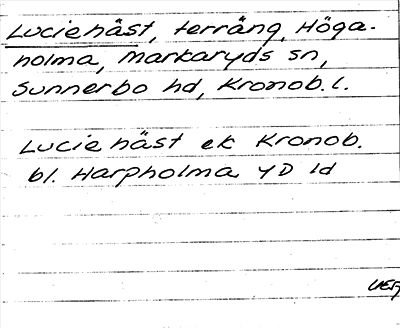 Luciehäst, terräng, Höga-
holma, Markaryds sn,
Sunnerbo hd, Kronob. l.
Luciehäst ek Kronob.
bl. Harpholma YD ld